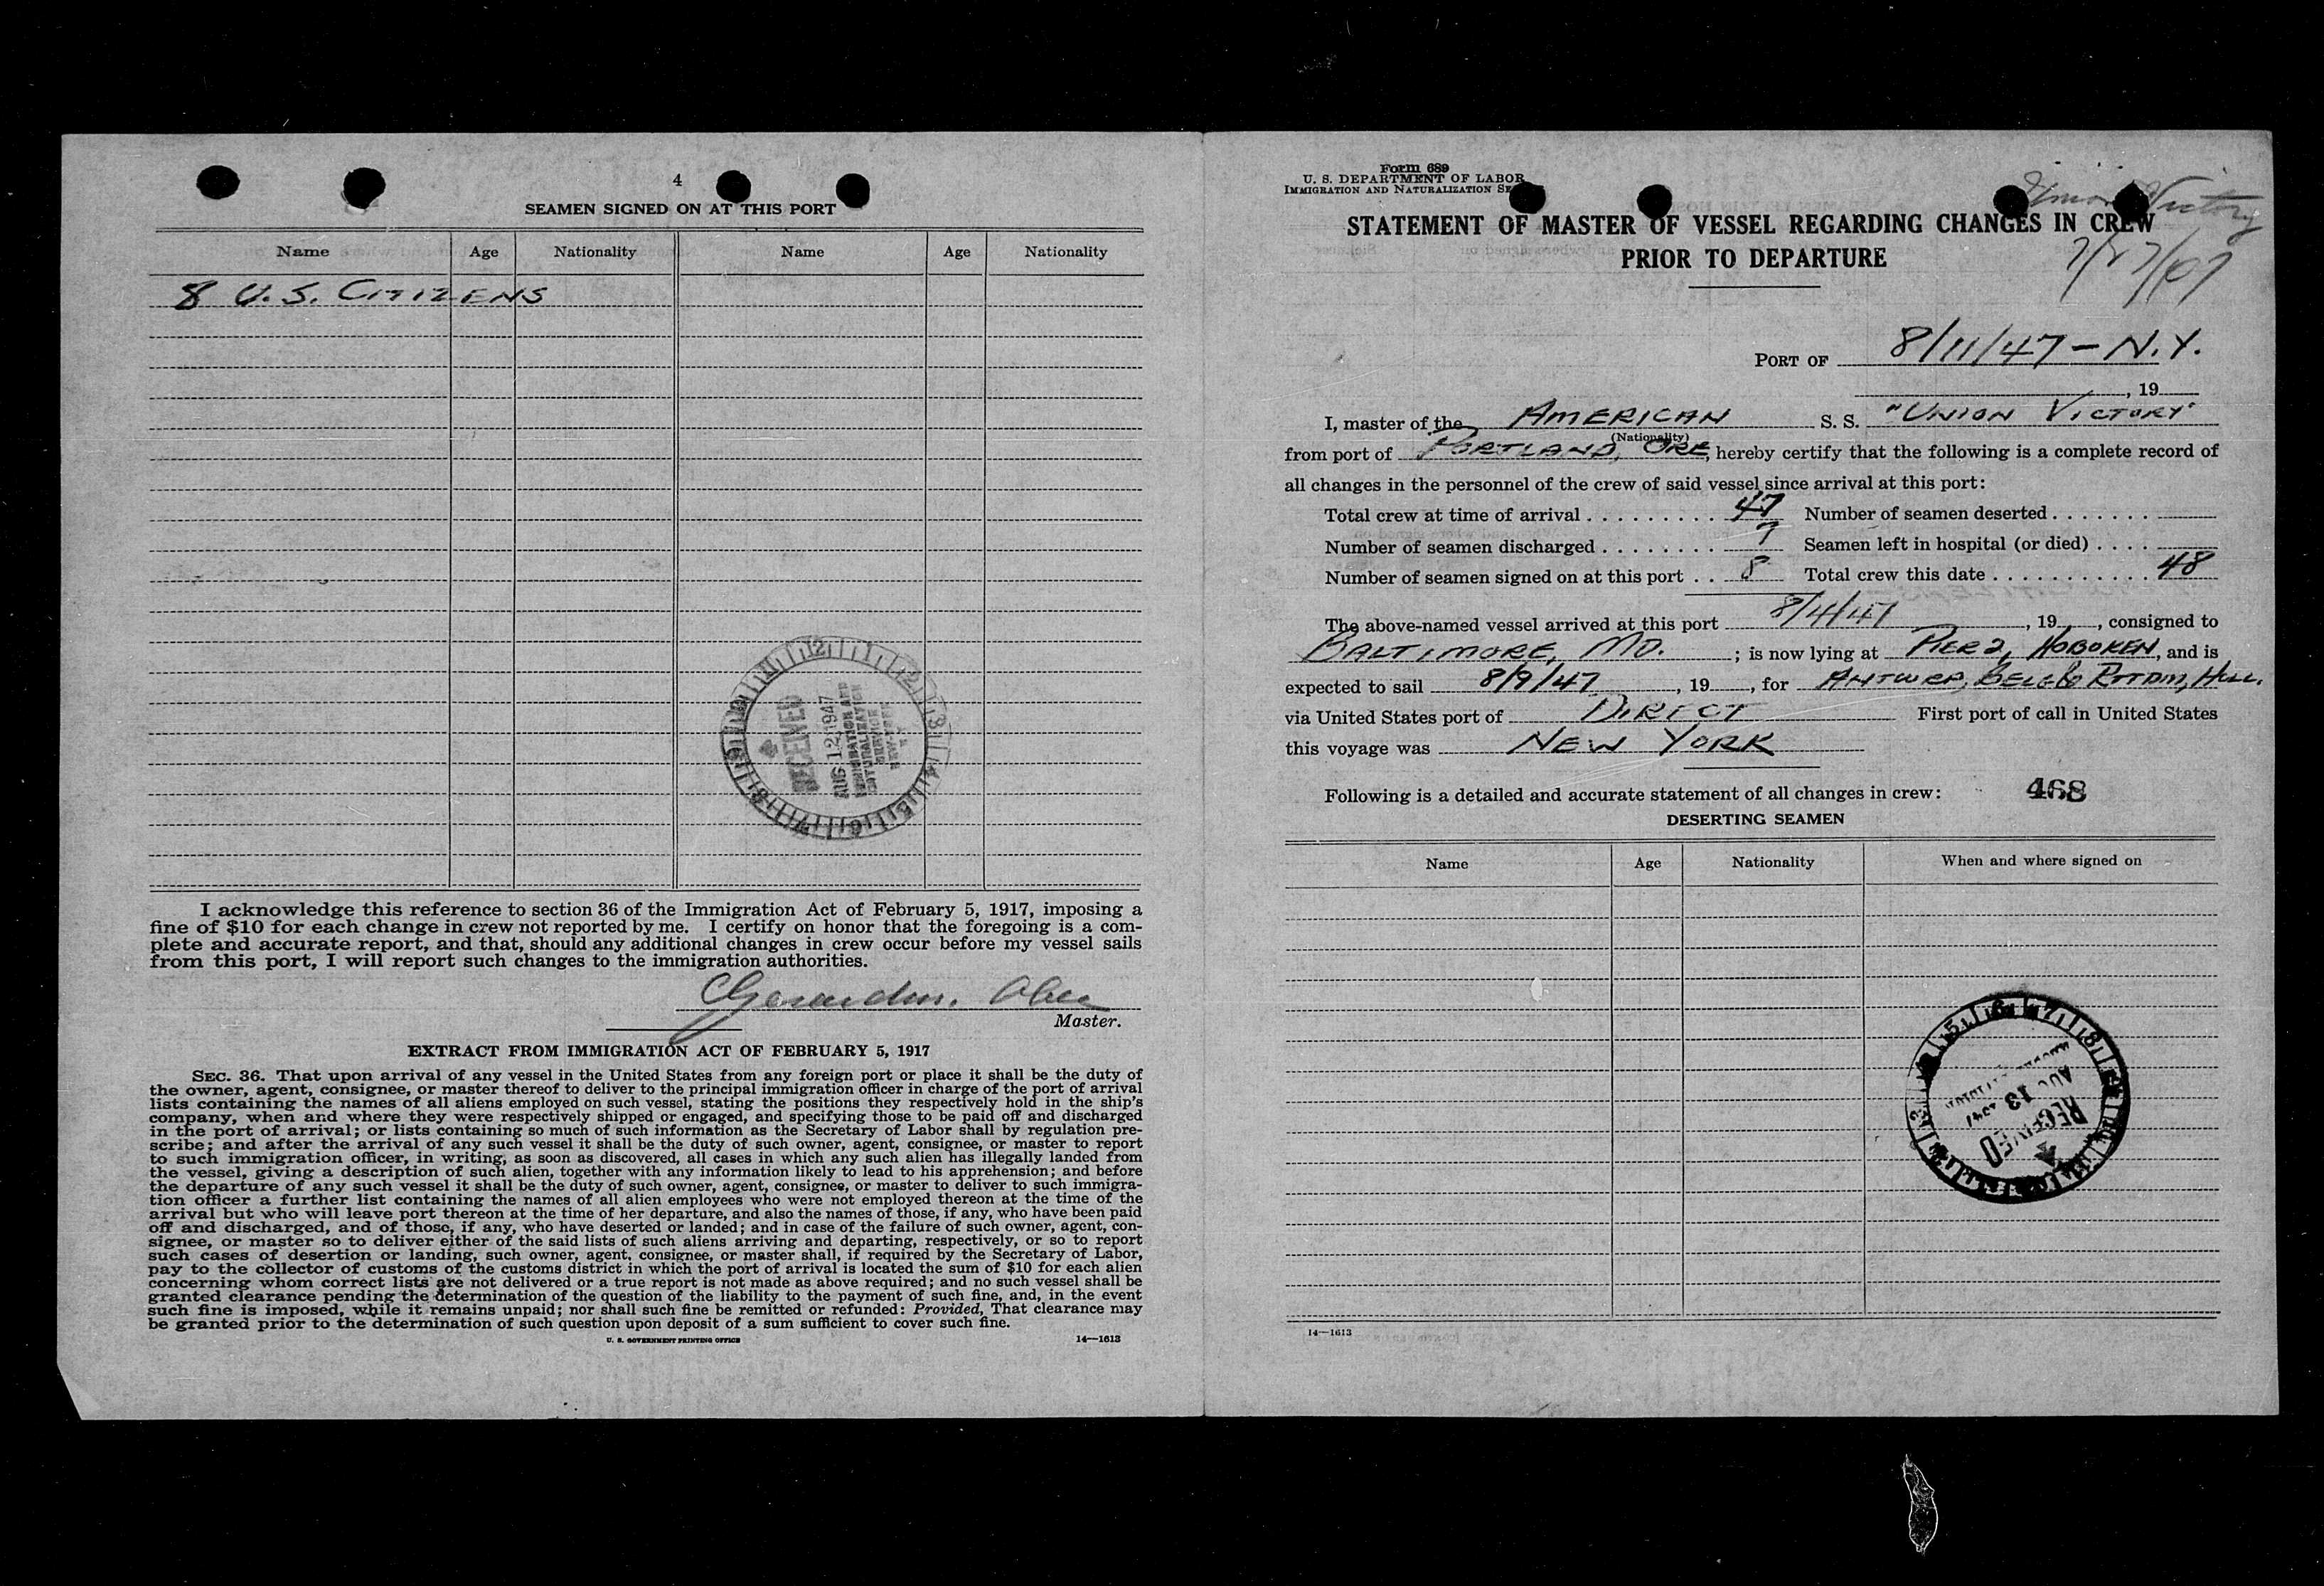 4
SEAMEN SIGNED ON AT THIS PORT
Name Age Nationality Name Age Nationality
8 U.S. CITIZENS
RECEIVED
AUG 12 1947
IMMIGRATION AND
NATURALIZATION
SERVICE
I acknowledge this reference to section 36 of the Immigration Act of February 5, 1917, imposing a
fine of $10 for each change in crew not reported by me. I certify on honor that the foregoing is a com-
plete and accurate report, and that, should any additional changes in crew occur before my vessel sails
from this port, I will report such changes to the immigration authorities.
Master.
EXTRACT FROM IMMIGRATION ACT OF FEBRUARY 5, 1917
SEC. 36. That upon arrival of any vessel in the United States from any foreign port or place it shall be the duty of
the owner, agent, consignee, or master thereof to deliver to the principal immigration officer in charge of the port of arrival
lists containing the names of all aliens employed on such vessel, stating the positions they respectively hold in the ship's
company, when and where they were respectively shipped or engaged, and specifying those to be paid off and discharged
in the port of arrival; or lists containing so much of such information as the Secretary of Labor shall by regulation pre-
scribe; and after the arrival of any such vessel it shall be the duty of such owner, agent, consignee, or master to report
to such immigration officer, in writing, as soon as discovered, all cases in which any such alien has illegally landed from
the vessel, giving a description of such alien, together with any information likely to lead to his apprehension; and before
the departure of any such vessel it shall be the duty of such owner, agent, consignee, or master to deliver to such immigra-
tion officer a further list containing the names of all alien employees who were not employed thereon at the time of the
arrival but who will leave port thereon at the time of her departure, and also the names of those, if any, who have been paid
off and discharged, and of those, if any, who have deserted or landed; and in case of the failure of such owner, agent, con-
signee, or master so to deliver either of the said lists of such aliens arriving and departing, respectively, or so to report
such cases of desertion or landing, such owner, agent, consignee, or master shall, if required by the Secretary of Labor,
pay to the collector of customs of the customs district in which the port of arrival is located the sum of $10 for each alien
concerning whom correct lists are not delivered or a true report is not made as above required; and no such vessel shall be
granted clearance pending the determination of the question of the liability to the payment of such fine, and, in the event
such fine is imposed, while it remains unpaid; nor shall such fine be remitted or refunded: Provided, That clearance may
be granted prior to the determination of such question upon deposit of a sum sufficient to cover such fine.
U. S. GOVERNMENT PRINTING OFFICE 14—1613
Form 689
U. S. DEPARTMENT OF LABOR
IMMIGRATION AND NATURALIZATION
Victory
STATEMENT OF MASTER OF VESSEL REGARDING CHANGES IN CREW
PRIOR TO DEPARTURE
PORT OF 8/11/47 - N.Y.
, 19
I, master of the AMERICAN S. S. "UNION VICTORY"
(Nationality)
from port of PORTLAND, ORE, hereby certify that the following is a complete record of
all changes in the personnel of the crew of said vessel since arrival at this port:
Total crew at time of arrival 47 Number of seamen deserted
Number of seamen discharged 7 Seamen left in hospital (or died)
Number of seamen signed on at this port 8 Total crew this date 48
The above-named vessel arrived at this port 8/4/47, 19, consigned to
BALTIMORE, MD.; is now lying at PIER 2, HOBOKEN, and is
expected to sail 8/9/47, 19, for ANTWERP, BELG
via United States port of DIRECT First port of call in United States
this voyage was NEW YORK
Following is a detailed and accurate statement of all changes in crew: 468
DESERTING SEAMEN
Name Age Nationality When and where signed on
RECEIVED
AUG 13 1947
14—1613